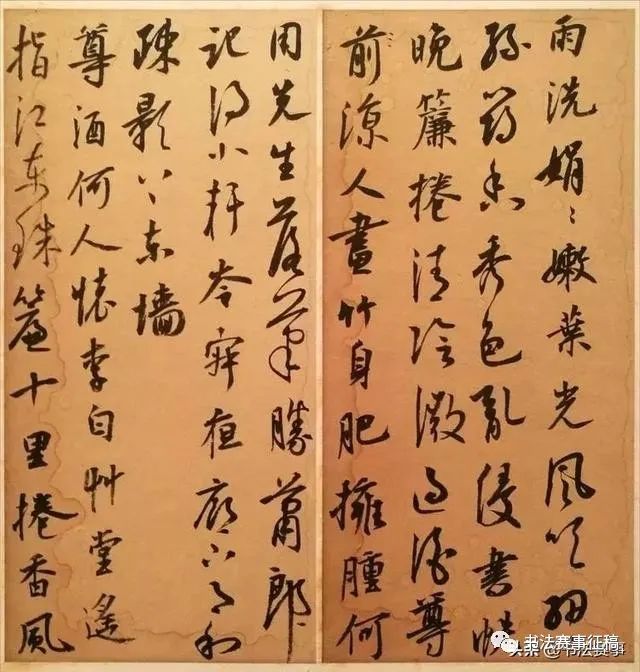 雨洗娟〻嫩葉光風吹細
綠筠香秀色亂侵書帙
晚簾捲清陰微過酒尊
前涼人畫竹身肥擁腫何
用先生落筆勝蕭郎
記得小軒岑寂夜廊下月和
疎影上東墻
尊酒何人懷李白艸堂遙
指江東珠簾十里捲香風
书法赛事征稿
头条 @书法赛事